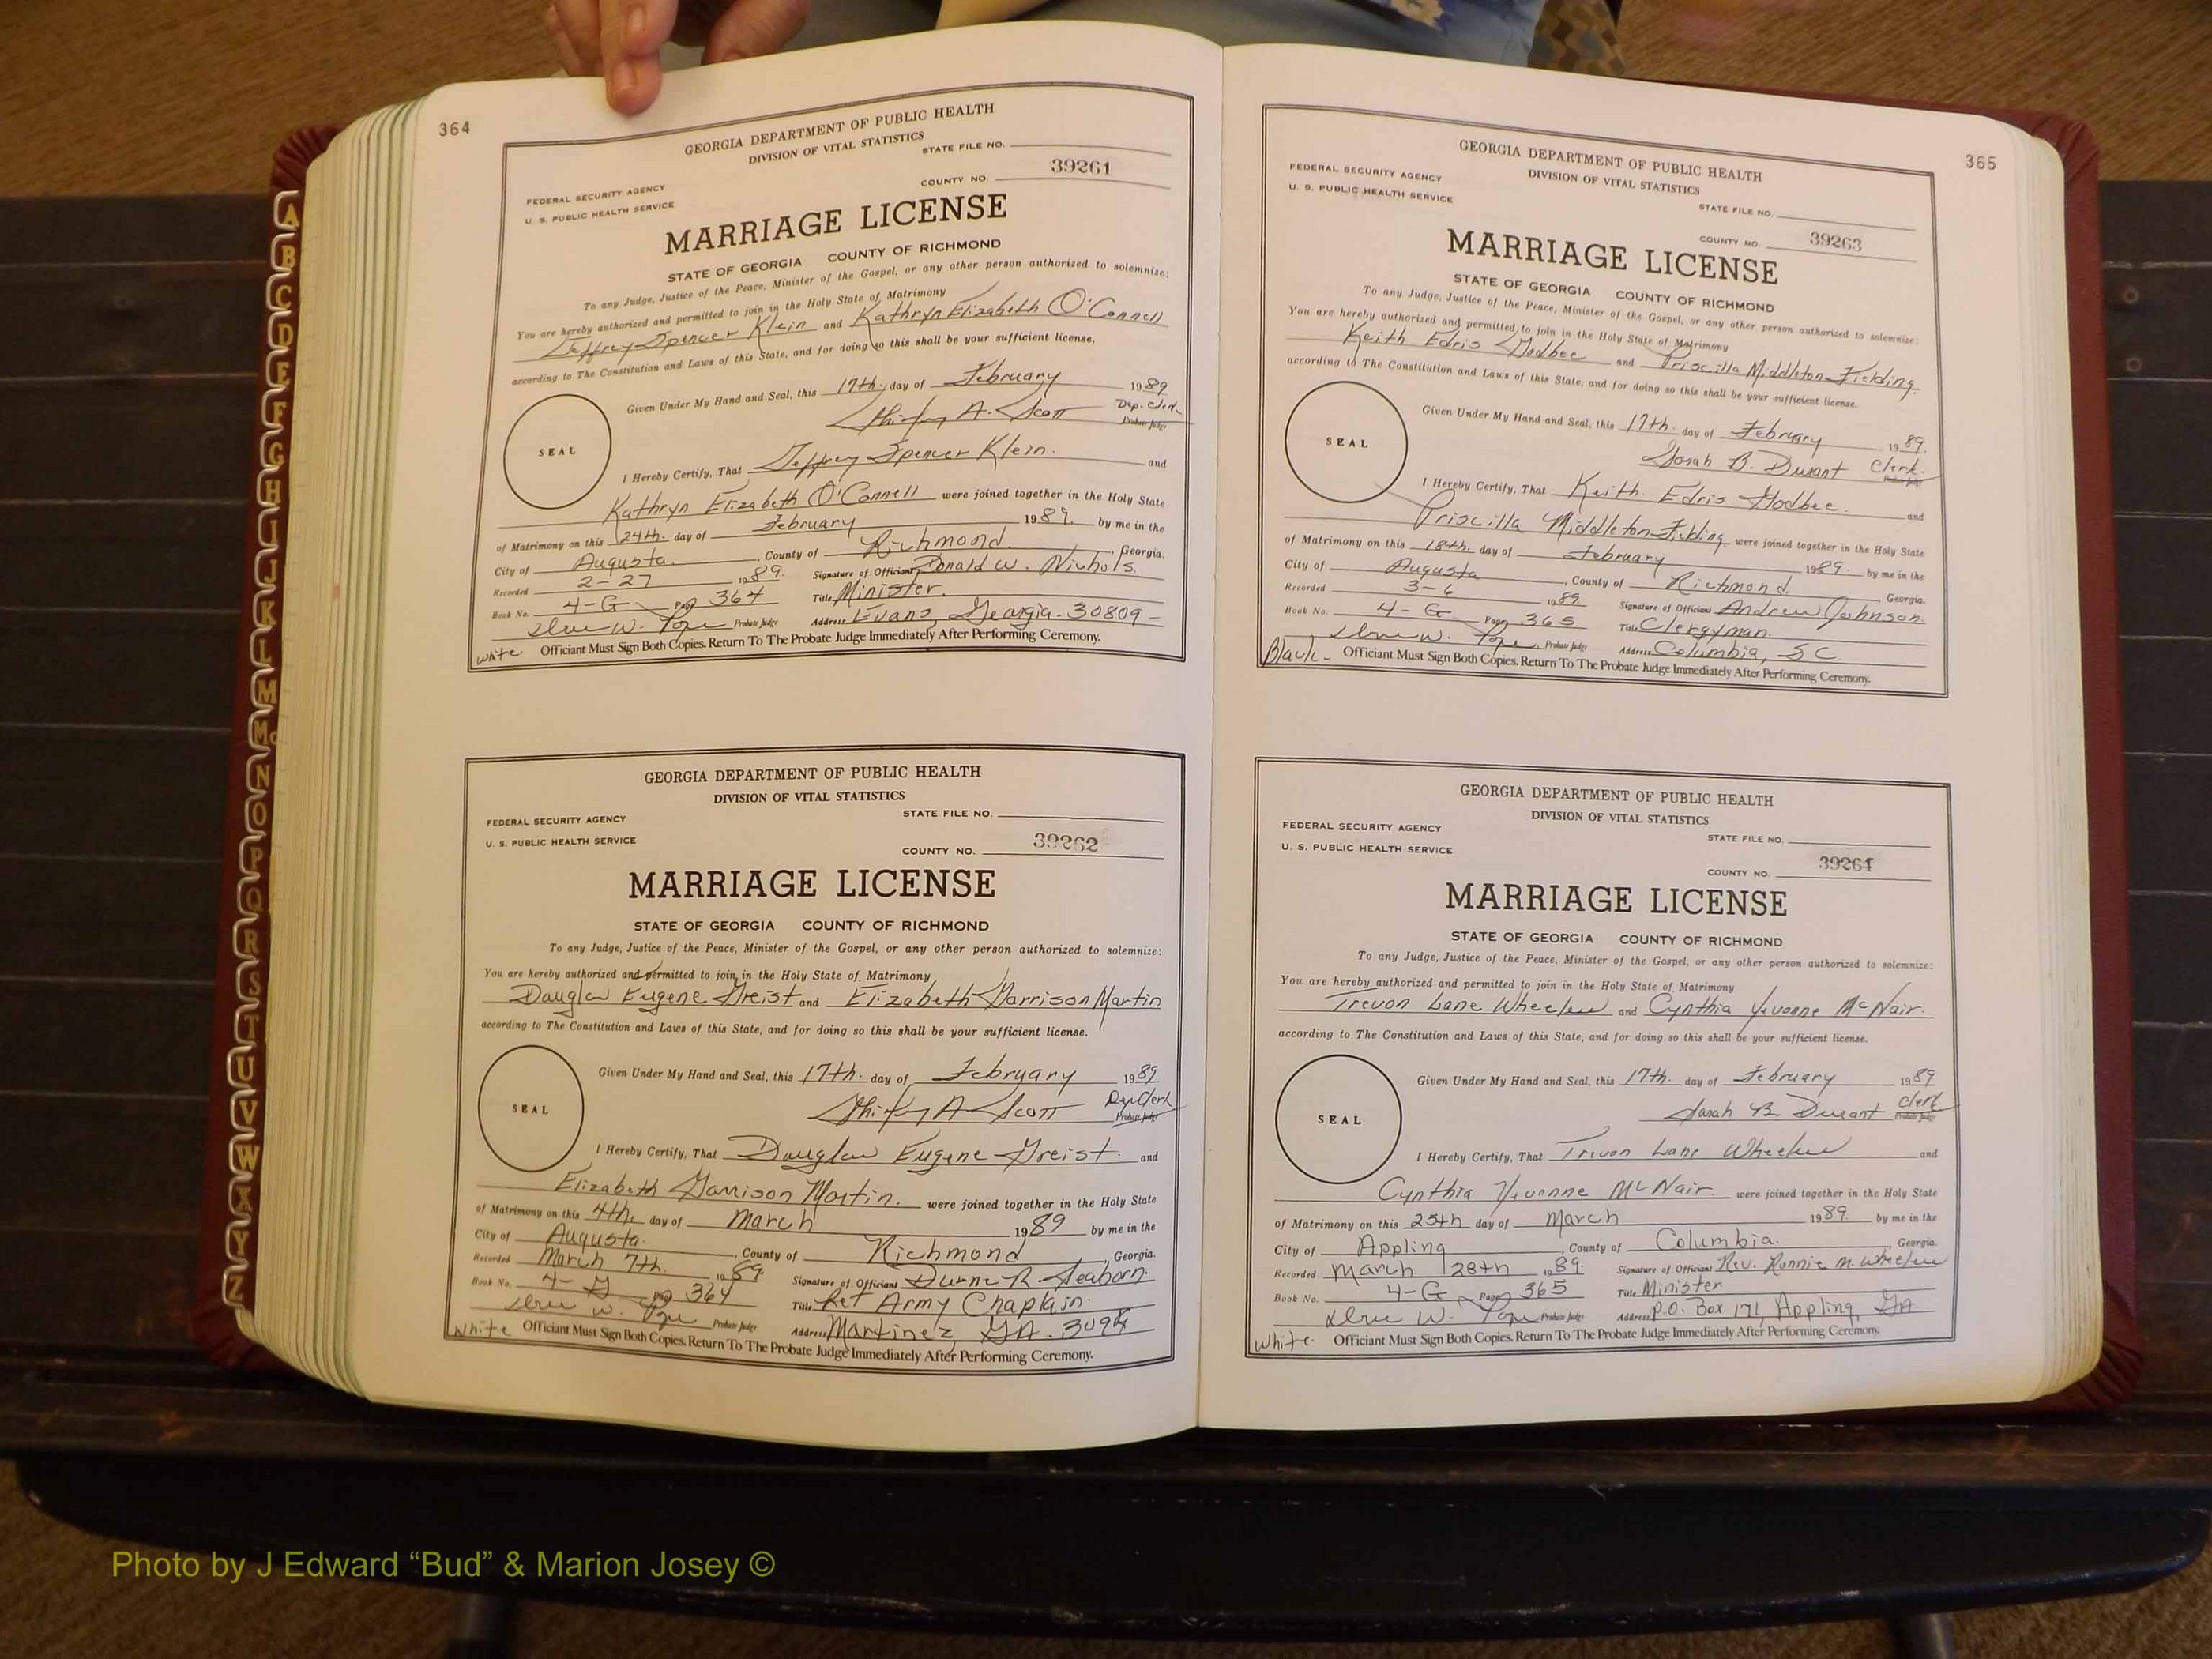 364
GEORGIA DEPARTMENT OF PUBLIC HEALTH
DIVISION OF VITAL STATISTICS
STATE FILE NO.
FEDERAL SECURITY AGENCY
U. S. PUBLIC HEALTH SERVICE
COUNTY NO. 39261
MARRIAGE LICENSE
STATE OF GEORGIA COUNTY OF RICHMOND
To any Judge, Justice of the Peace, Minister of the Gospel, or any other person authorized to solemnize:
You are hereby authorized and permitted to join in the Holy State of Matrimony
Jeffrey Spencer Klein and Kathryn Elizabeth O'Connell
according to The Constitution and Laws of this State, and for doing so this shall be your sufficient license.
Given Under My Hand and Seal, this 17th. day of February 1989
Shirley A. Scott Dep. Clerk
Probate Judge
SEAL
I Hereby Certify, That Jeffrey Spencer Klein. and
Kathryn Elizabeth O'Connell were joined together in the Holy State
of Matrimony on this 24th. day of February 1989. by me in the
City of Augusta. County of Richmond. Georgia.
Recorded 2-27 1989. Signature of Officiant Donald W. Nichols.
Book No. 4-G Page 364 Title Minister.
Probate Judge Address Evans, Georgia. 30809-
White Officiant Must Sign Both Copies. Return To The Probate Judge Immediately After Performing Ceremony.
GEORGIA DEPARTMENT OF PUBLIC HEALTH
DIVISION OF VITAL STATISTICS
STATE FILE NO.
FEDERAL SECURITY AGENCY
U. S. PUBLIC HEALTH SERVICE
COUNTY NO. 39262
MARRIAGE LICENSE
STATE OF GEORGIA COUNTY OF RICHMOND
To any Judge, Justice of the Peace, Minister of the Gospel, or any other person authorized to solemnize:
You are hereby authorized and permitted to join in the Holy State of Matrimony
Douglas Eugene Greist and Elizabeth Garrison Martin
according to The Constitution and Laws of this State, and for doing so this shall be your sufficient license.
Given Under My Hand and Seal, this 17th. day of February 1989
Shirley A Scott Dep Clerk
Probate Judge
SEAL
I Hereby Certify, That Douglas Eugene Greist. and
Elizabeth Garrison Martin. were joined together in the Holy State
of Matrimony on this 4th. day of March 1989 by me in the
City of Augusta. County of Richmond Georgia.
Recorded March 7th. 1989. Signature of Officiant R. Seaborn.
Book No. 4-G Page 364 Title Ret Army Chaplain.
Probate Judge Address Martinez, GA.
White Officiant Must Sign Both Copies. Return To The Probate Judge Immediately After Performing Ceremony.
365
GEORGIA DEPARTMENT OF PUBLIC HEALTH
DIVISION OF VITAL STATISTICS
FEDERAL SECURITY AGENCY
U. S. PUBLIC HEALTH SERVICE
STATE FILE NO.
COUNTY NO. 39263
MARRIAGE LICENSE
STATE OF GEORGIA COUNTY OF RICHMOND
To any Judge, Justice of the Peace, Minister of the Gospel, or any other person authorized to solemnize:
You are hereby authorized and permitted to join in the Holy State of Matrimony
Keith Edris Godbee and Priscilla Middleton Fielding
according to The Constitution and Laws of this State, and for doing so this shall be your sufficient license.
Given Under My Hand and Seal, this 17th. day of February 1989.
Sarah B. Durant Clerk.
Probate Judge
SEAL
I Hereby Certify, That Keith. Edris Godbee. and
Priscilla Middleton Fielding were joined together in the Holy State
of Matrimony on this 18th. day of February 1989. by me in the
City of Augusta County of Richmond. Georgia.
Recorded 3-6 1989. Signature of Officiant Andrew Johnson.
Book No. 4-G Page 365 Title Clergyman.
Probate Judge Address Columbia, SC.
Black- Officiant Must Sign Both Copies. Return To The Probate Judge Immediately After Performing Ceremony.
GEORGIA DEPARTMENT OF PUBLIC HEALTH
DIVISION OF VITAL STATISTICS
FEDERAL SECURITY AGENCY
U. S. PUBLIC HEALTH SERVICE
STATE FILE NO.
COUNTY NO. 39264
MARRIAGE LICENSE
STATE OF GEORGIA COUNTY OF RICHMOND
To any Judge, Justice of the Peace, Minister of the Gospel, or any other person authorized to solemnize:
You are hereby authorized and permitted to join in the Holy State of Matrimony
Trevon Lane Wheeler and Cynthia Yvonne McNair.
according to The Constitution and Laws of this State, and for doing so this shall be your sufficient license.
Given Under My Hand and Seal, this 17th. day of February 1989
Sarah B. Durant Clerk
Probate Judge
SEAL
I Hereby Certify, That Trevon Lane Wheeler and
Cynthia Yvonne McNair. were joined together in the Holy State
of Matrimony on this 25th day of March 1989. by me in the
City of Appling County of Columbia. Georgia.
Recorded March 28th 1989. Signature of Officiant Rev. Ronnie M. Wheeler
Book No. 4-G Page 365 Title Minister
Probate Judge Address P.O. Box 171, Appling, GA
White. Officiant Must Sign Both Copies. Return To The Probate Judge Immediately After Performing Ceremony.
A
B
C
D
E
F
G
H
I
J
K
L
M
Mc
N
O
P
Q
R
S
T
U
V
W
X
Y
Z
Photo by J Edward “Bud” & Marion Josey ©